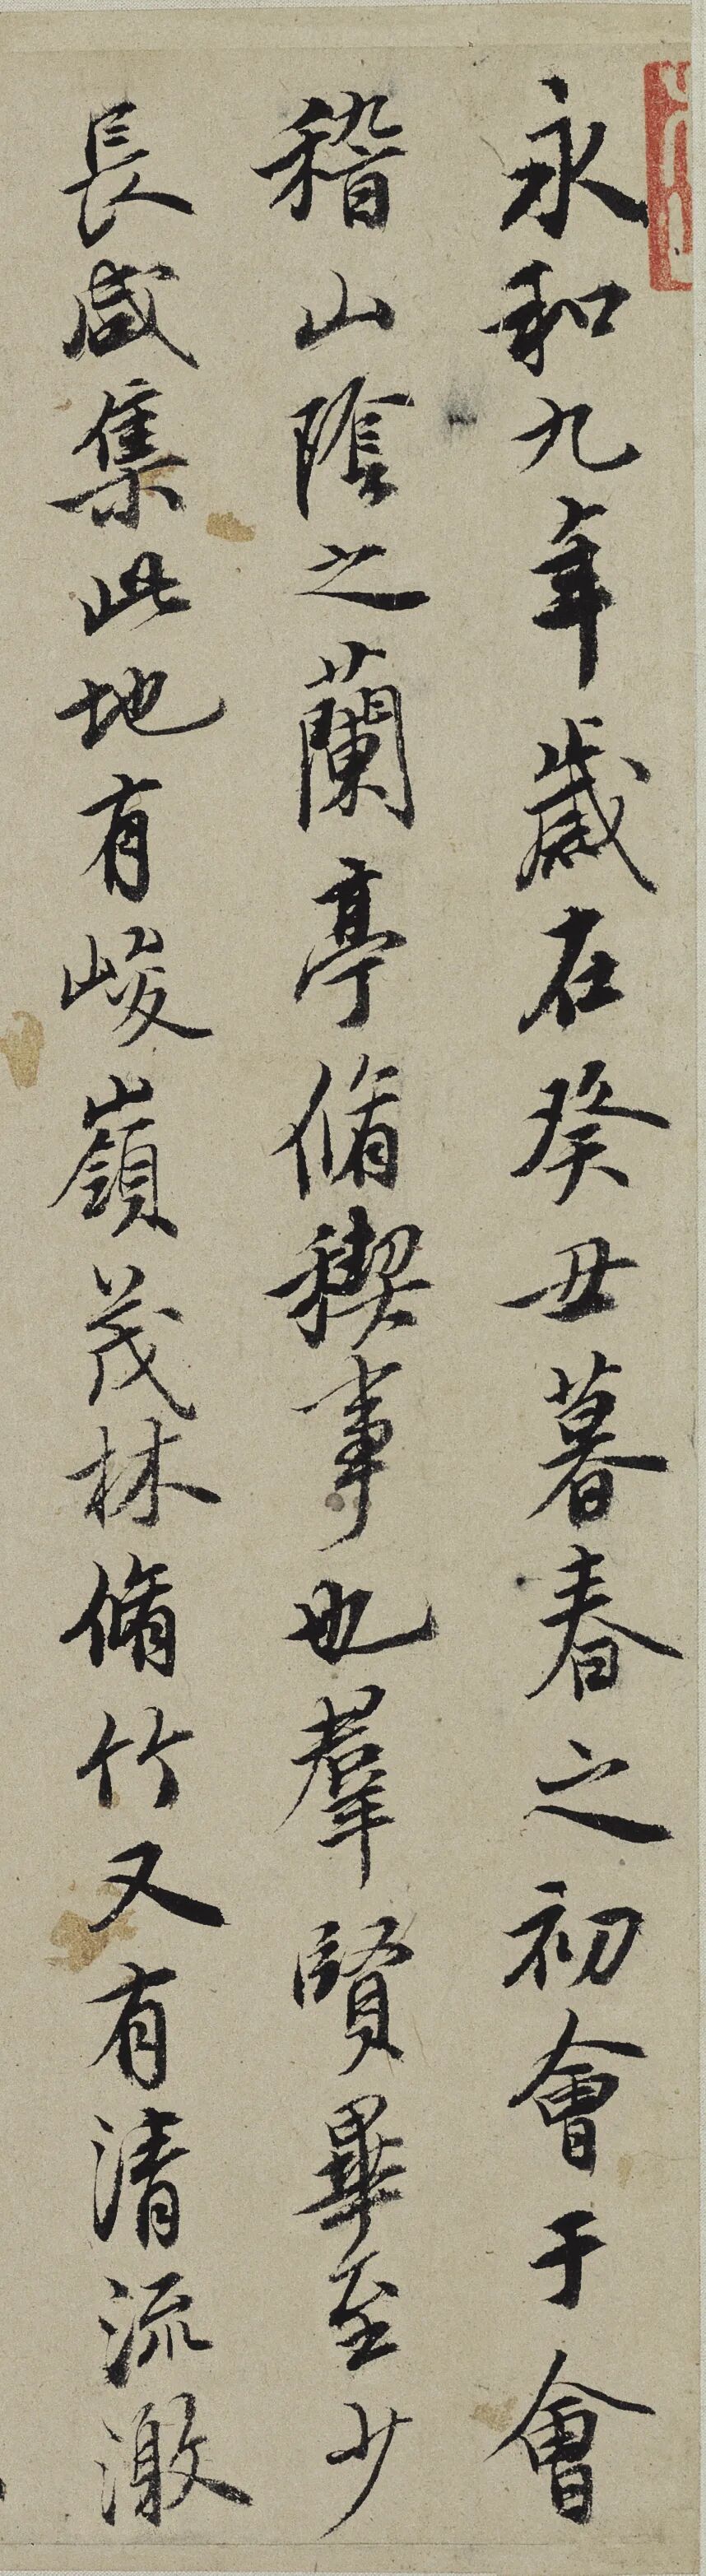 永和九年歲在癸丑暮春之初會于會
稽山陰之蘭亭脩稧事也羣賢畢至少
長咸集此地有峻嶺茂林脩竹又有清流激